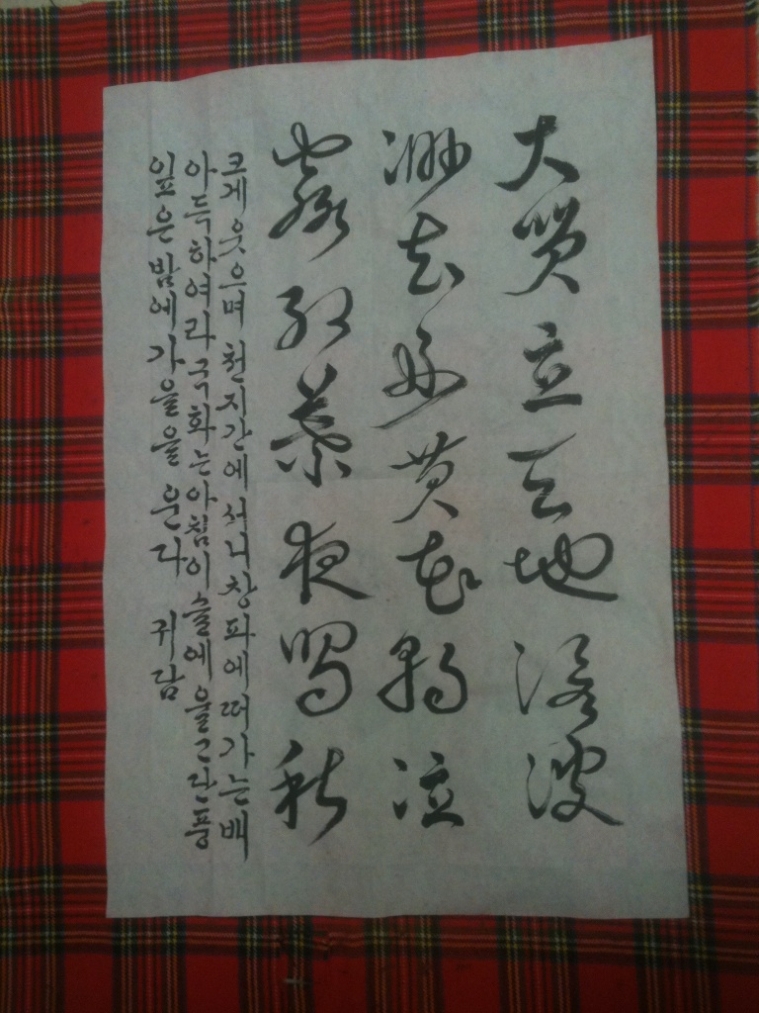 大笑立天地滄波
渺去舟黃花朝泣
露紅葉夜鳴秋
크게 웃으며 천지간에 서니 창파에 떠가는 배
아득하여라 국화는 아침이슬에 울고 단풍
잎은 밤에 가을을 운다 귀람